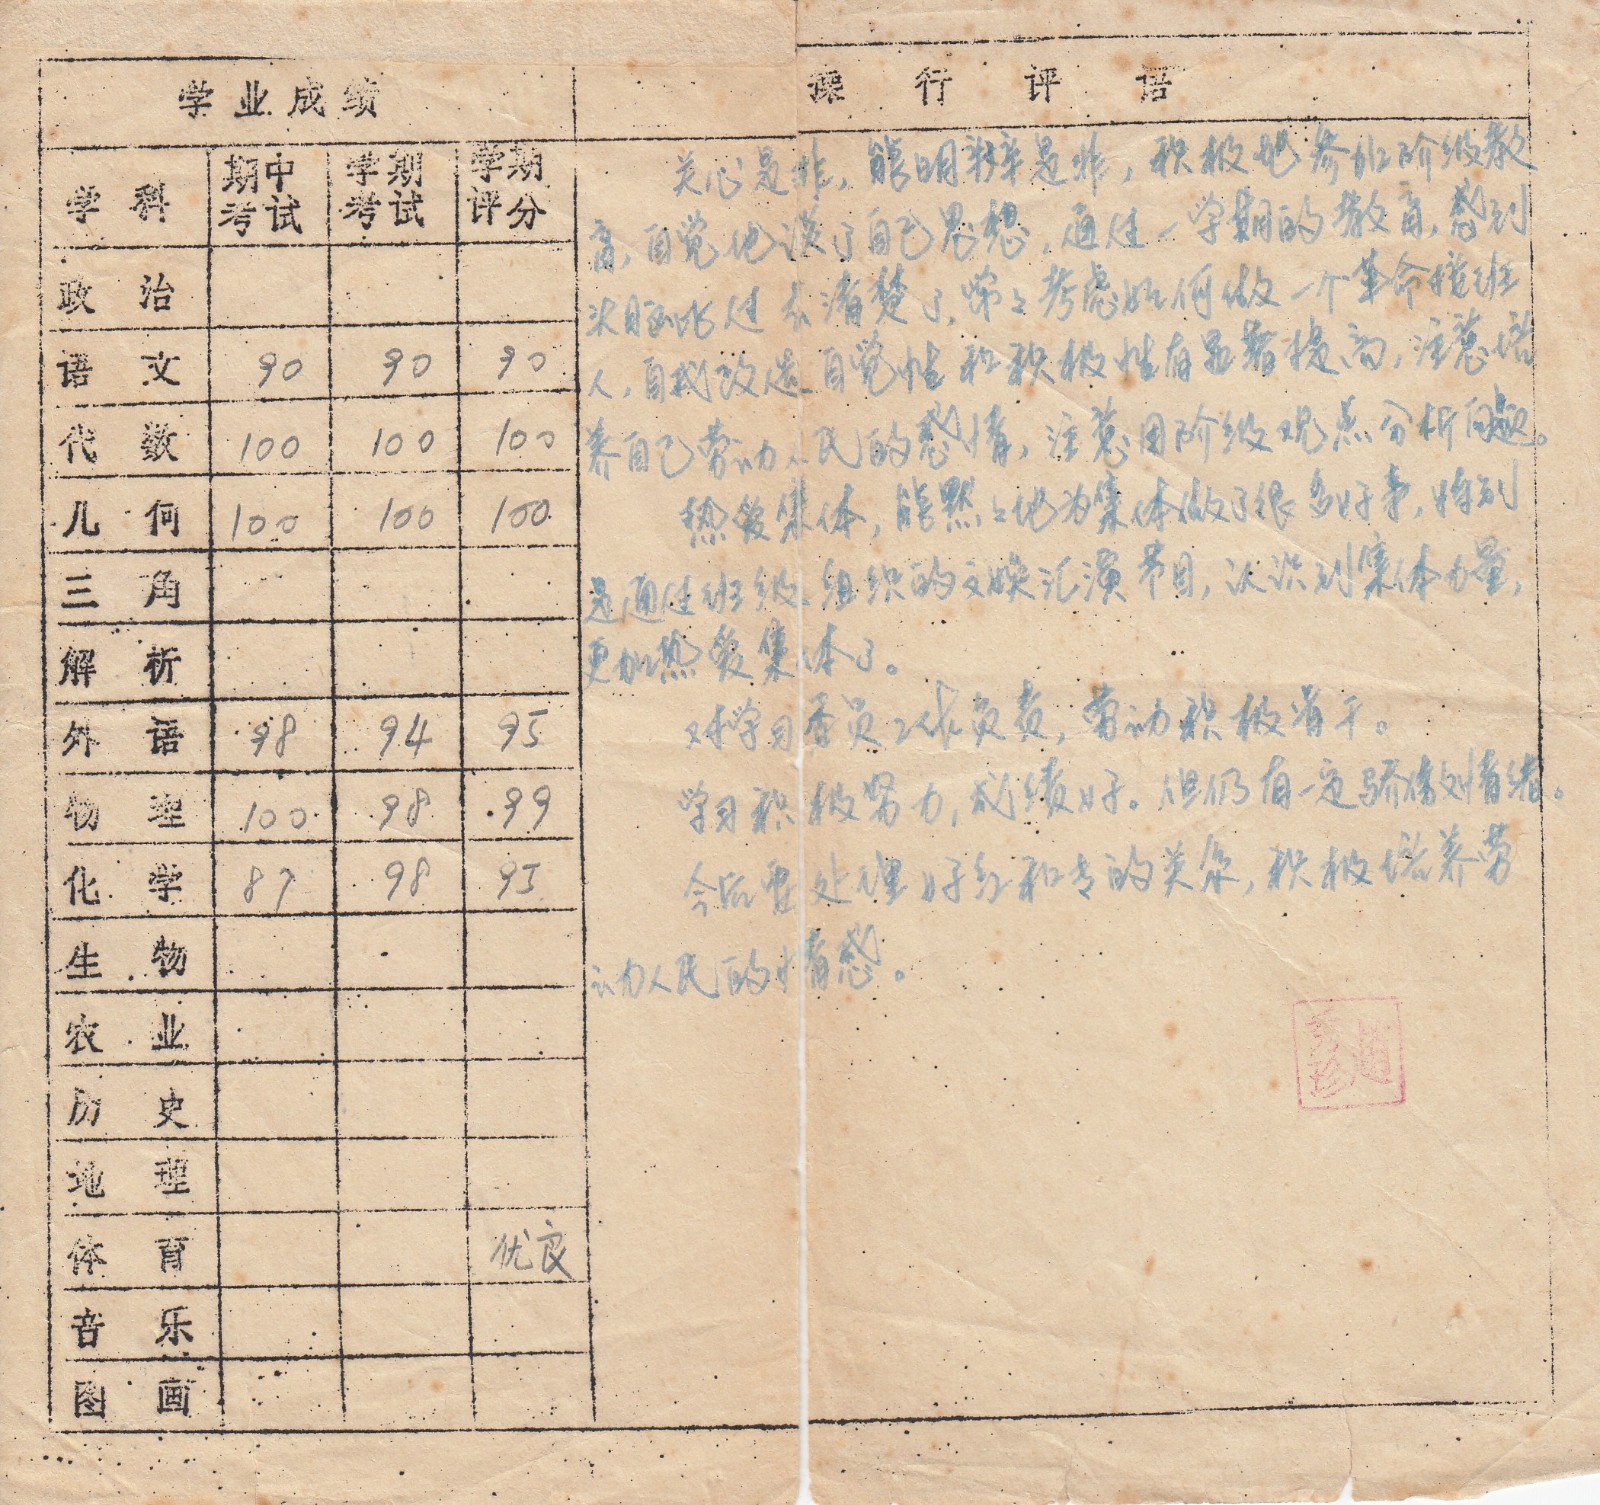 学业成绩
操行评语
学科 期中考试 学期考试 学期评分
政治
语文 90 90 90
代数 100 100 100
几何 100 100 100
三角
解析
外语 98 94 95
物理 100 98 99
化学 87 98 95
生物
农业
历史
地理
体育 优良
音乐
图画
关心是非，能明辨是非，积极地参加阶级教
育，自觉地谈了自己思想，通过一学期的教育，感到
头脑比过去清楚了，常々考虑如何做一个革命接班
人，自我改造自觉性和积极性有显著提高，注意培
养自己劳动人民的感情，注意用阶级观点分析问题。
热爱集体，能默々地为集体做了很多好事，特别
是通过班级组织的文娱汇演节目，认识到集体力量，
更加热爱集体了。
对学习委员工作负责，劳动积极肯干。
学习积极努力，成绩好。但仍有一定骄傲情绪。
今后要处理好红和专的关系，积极培养劳
动人民的情感。
赵
珍